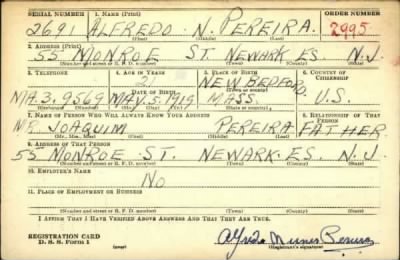 SERIAL NUMBER 1. NAME (Print) ORDER NUMBER
2691 ALFREDO N. PEREIRA. 2995
(First) (Middle) (Last)
2. ADDRESS (Print)
55 MONROE ST. NEWARK ES. N.J.
(Number and street or R. F. D. number) (Town) (County) (State)
3. TELEPHONE 4. AGE IN YEARS 5. PLACE OF BIRTH 6. COUNTRY OF CITIZENSHIP
21 NEW BEDFORD.
DATE OF BIRTH
MA.3.9569 MAY.5.1919 MASS. U.S.
(Exchange) (Number) (Mo.) (Day) (Yr.) (State or country)
7. NAME OF PERSON WHO WILL ALWAYS KNOW YOUR ADDRESS 8. RELATIONSHIP OF THAT PERSON
MR JOAQUIM PEREIRA FATHER
(Mr., Mrs., Miss) (First) (Middle) (Last)
9. ADDRESS OF THAT PERSON
55 MONROE ST. NEWARK. ES. N.J.
(Number and street or R. F. D. number) (Town) (County) (State)
10. EMPLOYER'S NAME
NO
11. PLACE OF EMPLOYMENT OR BUSINESS
(Number and street or R. F. D. number) (Town) (County) (State)
I AFFIRM THAT I HAVE VERIFIED ABOVE ANSWERS AND THAT THEY ARE TRUE.
REGISTRATION CARD
D. S. S. Form 1 (over) (Registrant's signature)
Alfredo Nunes Pereira